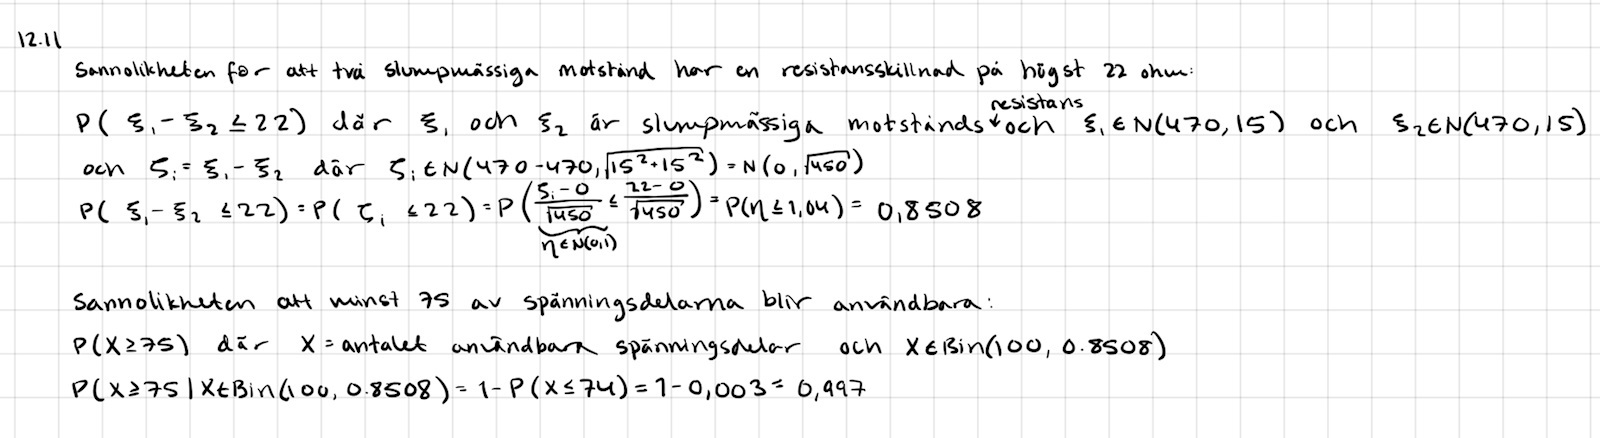 12.11
Sannolikheten för att två slumpmässiga motstånd har en resistansskillnad på högst 22 ohm:
resistans
P( ξ₁-ξ₂ ≤22) där ξ₁ och ξ₂ är slumpmässiga motstånds och ξ₁∈N(470,15) och ξ₂∈N(470,15)
och ζᵢ=ξ₁-ξ₂ där ζᵢ∈N(470-470,√(15²+15²))=N(0,√450)
P( ξ₁-ξ₂ ≤22)=P( ζᵢ ≤22)=P((ζᵢ-0)/√450 ≤ (22-0)/√450)=P(η≤1,04)= 0,8508
η∈N(0,1)
Sannolikheten att minst 75 av spänningsdelarna blir användbara:
P(X≥75) där X=antalet användbara spänningsdelar och X∈Bin(100, 0.8508)
P(X≥75|X∈Bin(100, 0.8508)=1-P(X≤74)=1-0,003=0,997